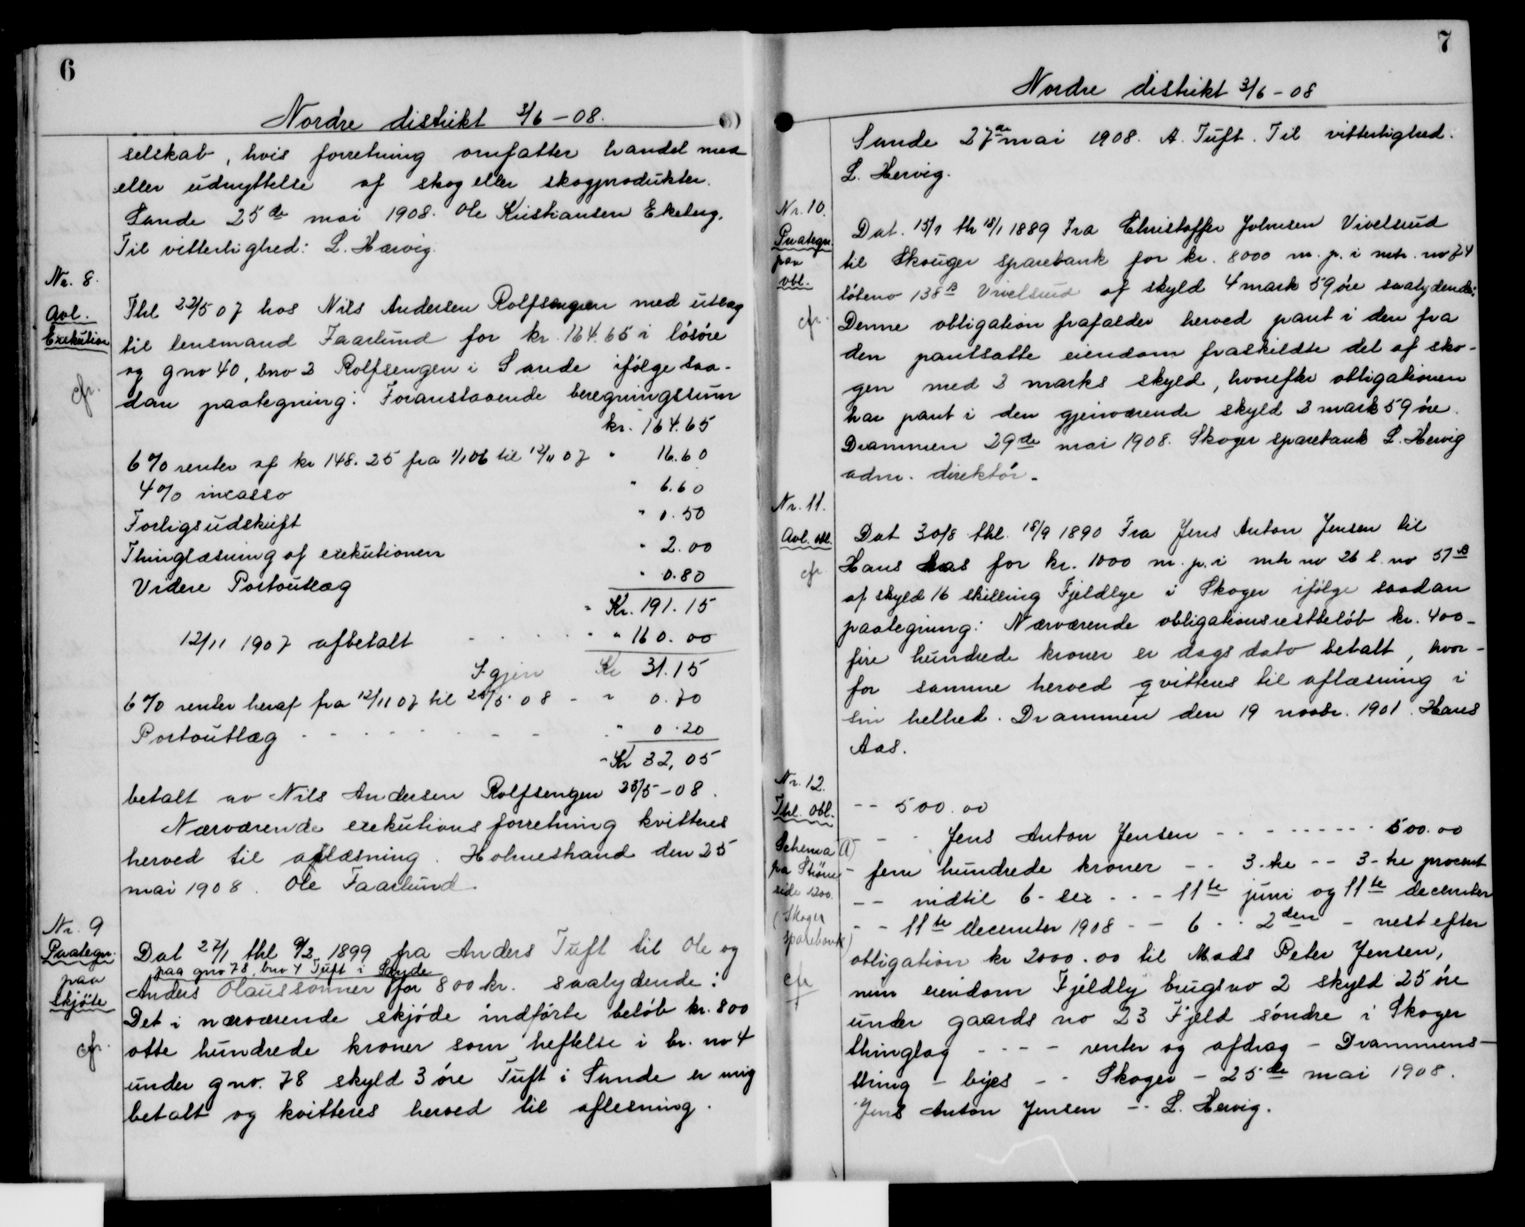 6
Nordre distrikt 3/6 - 08.
selskab, hvis forretning omfatter handel med
eller udnyttelse af skog eller skogprodukter.
Sande 25de mai 1908. Ole Kristiansen Ekeberg.
Til vitterlighed: L. Hærvig.
Nr. 8.
Avl.
Exekution
cfr.
Thl 22/5 07 hos Nils Andersen Rolfsengen med utlæg
til lensmand Faarlund for kr. 164.65 i løsøre
og gno 40, bno 3 Rolfsengen i Sande ifølge saa-
dan paategning: Foranstaaende beregningssum
kr. 164.65
6 % renter af kr 148.25 fra 1/1 06 til 12/11 07 " 16.60
4 % incasso " 6.60
Forligsudskrift " 0.50
Thinglæsning af exekutionen " 2.00
Videre Portoutlæg " 0.80
" Kr. 191.15
12/11 1907 afbetalt - - - - " " 160.00
Igjen Kr 31.15
6 % renter heraf fra 12/11 07 til 25/5 08 - " 0.70
Portoutlæg - - - - - - - " 0.20
- Kr 32,05
betalt av Nils Andersen Rolfsengen 25/5 - 08.
Nærværende exekutionsforretning kvitteres
herved til aflæsning. Holmestrand den 25
mai 1908. Ole Faarlund.
Nr. 9
Paategn.
paa
skjøte
cfr.
Dat 27/1 thl 9/2 1899 fra Anders Tuft til Ole og
paa gno 78, bno 4 Tuft i Sande
Anders Olaussønner for 800 kr. saalydende:
Det i nærværende skjøde indførte beløb kr. 800
otte hundrede kroner som heftelse i br. no 4
under gno. 78 skyld 3 øre Tuft i Sande er mig
betalt og kvitteres herved til aflesning.
7
Nordre distrikt 3/6 - 08
Sande 27de mai 1908. A. Tuft. Til vitterlighed.
L. Hervig.
Nr. 10.
Paategn.
paa
obl.
cfr.
Dat. 15/1 th 18/1 1889 Fra Christoffer Johnsen Vivelsrud
til Skouger sparebank for kr. 8000 m. p. i mtr. no 74
løbeno 138 B Vivelsrud af skyld 4 mark 59 øre saalydende:
Denne obligation frafalder herved pant i den fra
den pantsatte eiendom fraskildte del af sko-
gen med 2 marks skyld, hvorefter obligationen
har pant i den gjenværende skyld 2 mark 59 øre.
Drammen 29de mai 1908. Skoger sparebank L. Hervig
adm. direktør.
Nr. 11.
Avl. obl.
cfr
Dat 30/8 thl. 18/9 1890 Fra Jens Anton Jensen til
Hans Aas for kr. 1000 m. p. i mtr no 26 l. no 57 B
af skyld 16 skilling Fjeldlye i Skoger ifølge saadan
paategning: Nærværende obligationsrestbeløb kr. 400 -
fire hundrede kroner er dags dato betalt, hvor-
for samme herved qvitteres til aflæsning i
sin helhed. Drammen den 19 novbr. 1901. Hans
Aas.
Nr. 12.
Thl. obl.
Schema (A)
pa
side 1200.
(Skoger
sparebank)
cfr
- - 500.00
- - Jens Anton Jensen - - - - - - - - 500.00
- fem hundrede kroner - - 3-tre - - 3-tre procent
- - indtil 6-sex - - - 11te juni og 11te december
- - 11te december 1908 - - 6 - - 2den - nest efter
obligation kr 2000.00 til Mads Peter Jensen,
min eiendom Fjeldly brugsno 2 skyld 25 øre
under gaards no 23 Fjeld søndre i Skoger
thinglag - - - - renter og afdrag - Drammens -
thing - byes - - Skoger - 25de mai 1908.
Jens Anton Jensen - - L. Hervig.